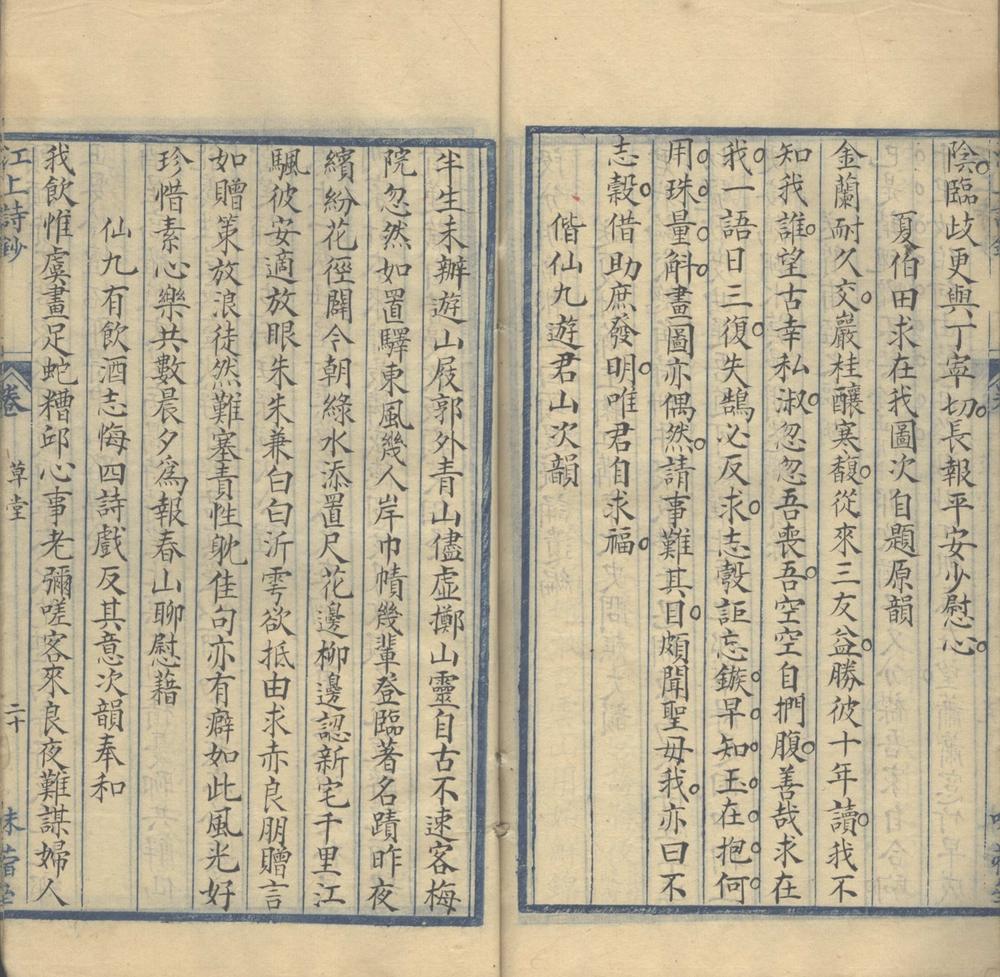 陰臨歧更與丁寧切長報平安少慰心
夏伯田求在我圖次自題原韻
金蘭耐久交巖桂釀寒馥從來三友益勝彼十年讀我不
知我誰望古幸私淑忽忽吾喪吾空空自捫腹善哉求在
我一語日三復失鵠必反求志彀詎忘鏃早知玉在抱何
用珠量斛畫圖亦偶然請事難其目頗聞聖毋我亦曰不
志穀借助庶發明唯君自求福
偕仙九遊君山次韻
半生未辦遊山屐郭外青山儘虛擲山靈自古不速客梅
院忽然如置驛東風幾人岸巾幘幾輩登臨著名蹟昨夜
繽紛花徑闢今朝綠水添置尺花邊柳邊認新宅千里江
颿彼安適放眼朱朱兼白白沂雩欲抵由求赤良朋贈言
如贈策放浪徒然難塞責性躭佳句亦有癖如此風光好
珍惜素心樂共數晨夕為報春山聊慰藉
仙九有飲酒志悔四詩戲反其意次韻奉和
我飲惟虞畫足蛇糟邱心事老彌嗟客來良夜難謀婦人
江上詩鈔
卷
草堂
二十